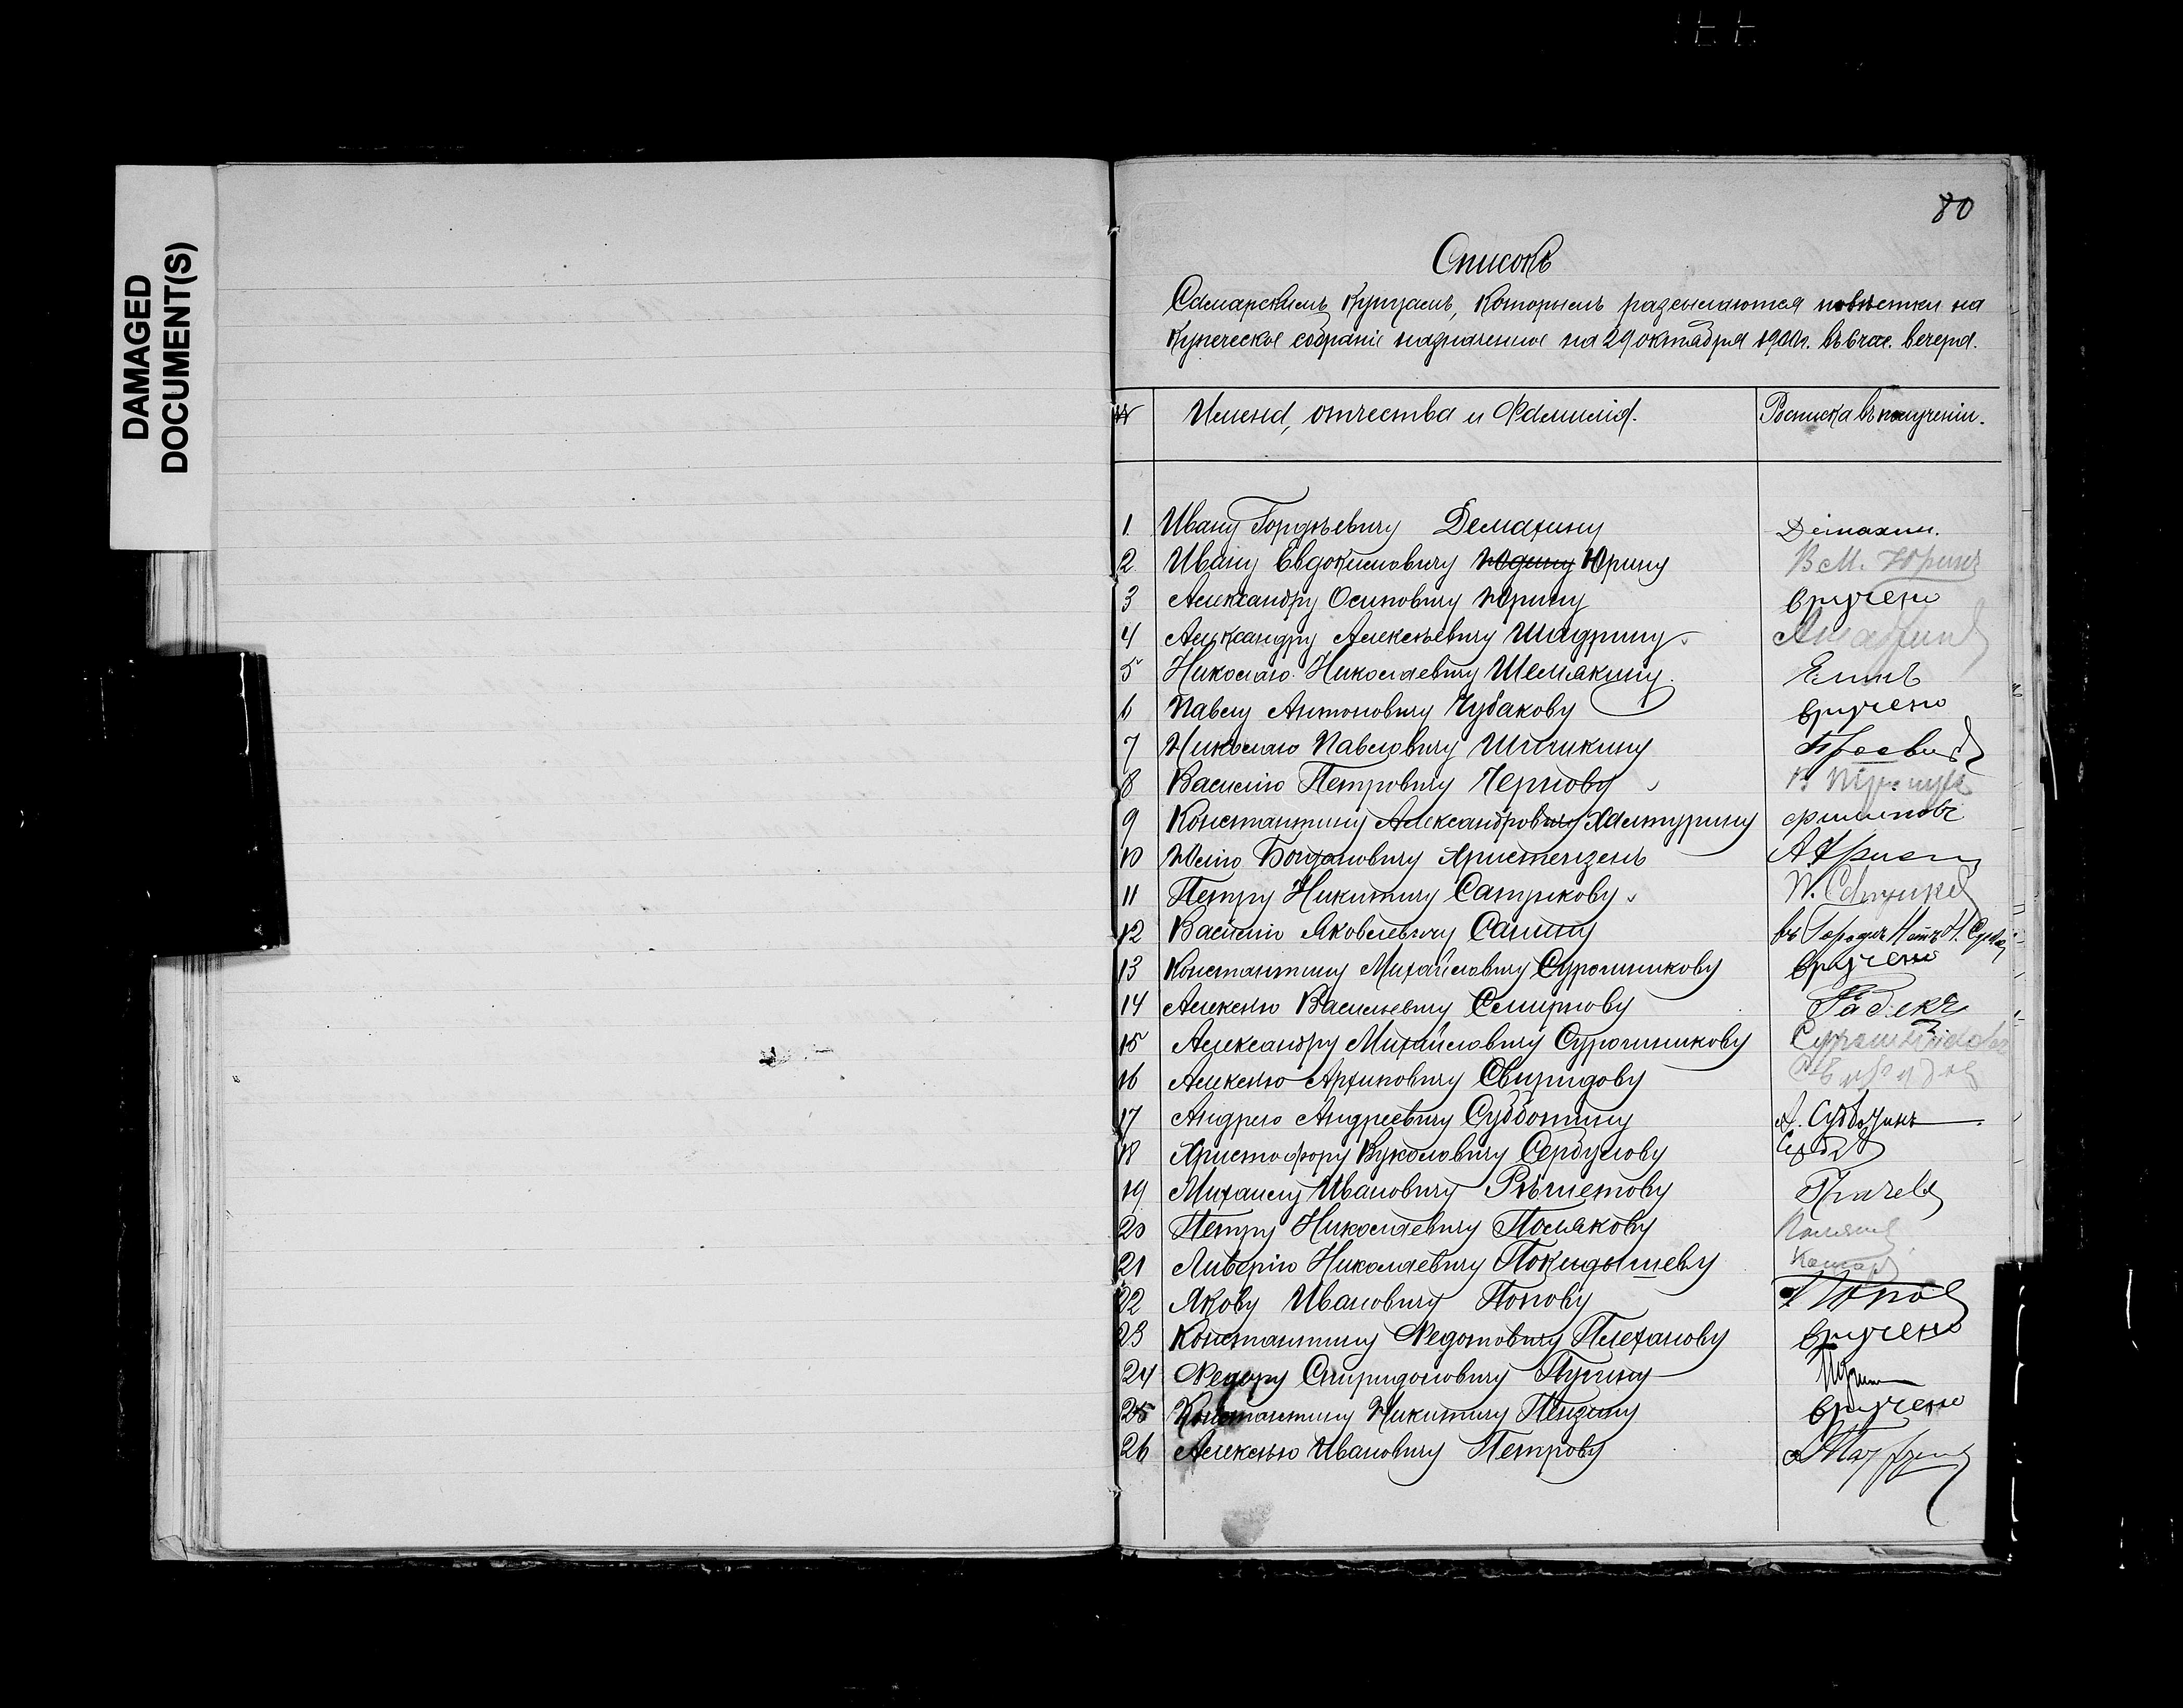 DAMAGED
DOCUMENT(S)
80
Списокъ
Самарскимъ купцамъ, которымъ разсылаются повѣстки на
купеческое собраніе назначенное на 29 октября 190 г. въ 6 час. вечера.
№ Имена, отчества и фамиліи. Росписка въ полученіи.
1 Ивану Гордѣевичу Демахину Демахин.
2 Ивану Евдокимовичу Юдину Юрину В М. Юринъ
3 Александру Осиповичу Юрину вручено
4 Александру Алексѣевичу Шадрину
5 Николаю Николаевичу Шемякину
6 Павлу Антоновичу Чубакову вручено
7 Николаю Павловичу Шишкину
8 Василію Петровичу Чернову
9 Константину Александровичу Халтурину
10 Юлію Богдановичу Христензенъ
11 Петру Никитичу Сапункову
12 Василію Яковлевичу Санину
13 Константину Михайловичу Сурошникову вручено
14 Алексѣю Васильевичу Смирнову
15 Александру Михайловичу Сурошникову Сурошников
16 Алексѣю Архиповичу Свиридову Свиридов
17 Андрею Андреевичу Субботину А. Субботинъ
18 Христофору Вуколовичу Сербулову
19 Михаилу Ивановичу Рѣшетову
20 Петру Николаевичу Полякову
21 Ливерію Николаевичу Покидышеву
22 Якову Ивановичу Попову Попов
23 Константину Федотовичу Плеханову вручено
24 Федору Спиридоновичу Пугину
25 Константину Никитичу Пензину вручено
26 Алексѣю Ивановичу Петрову